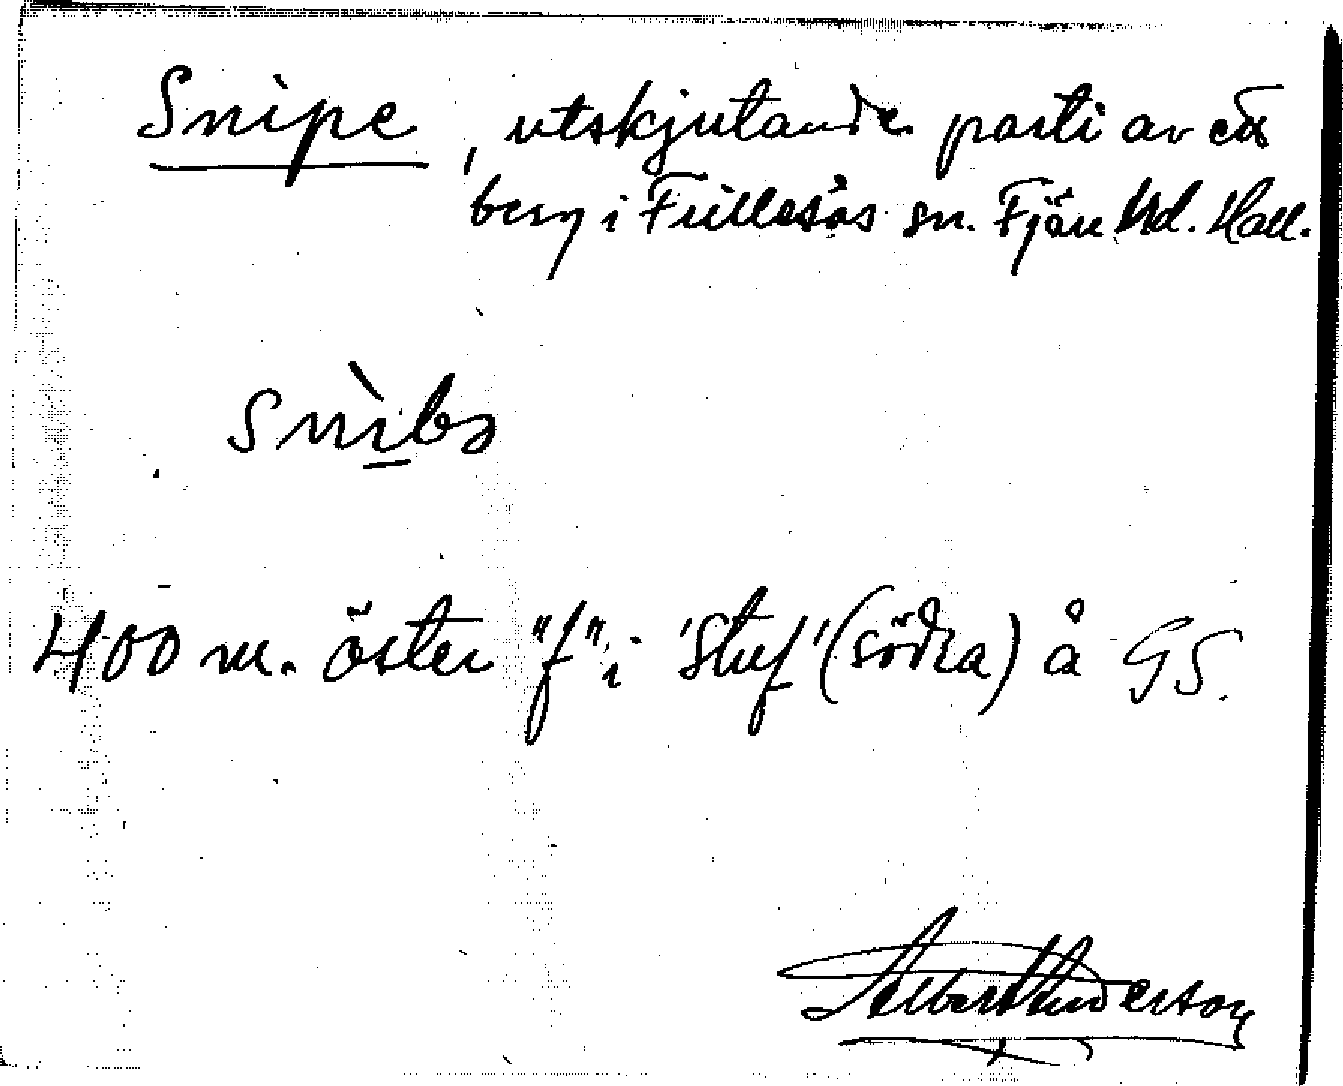 Snipe, utskjutande parti av ett
berg i Fillesås sn. Fjäre hd. Hall.
snìbə
400 m. öster "f" i 'Stuf' (södra) å GS.
Albert Anderson